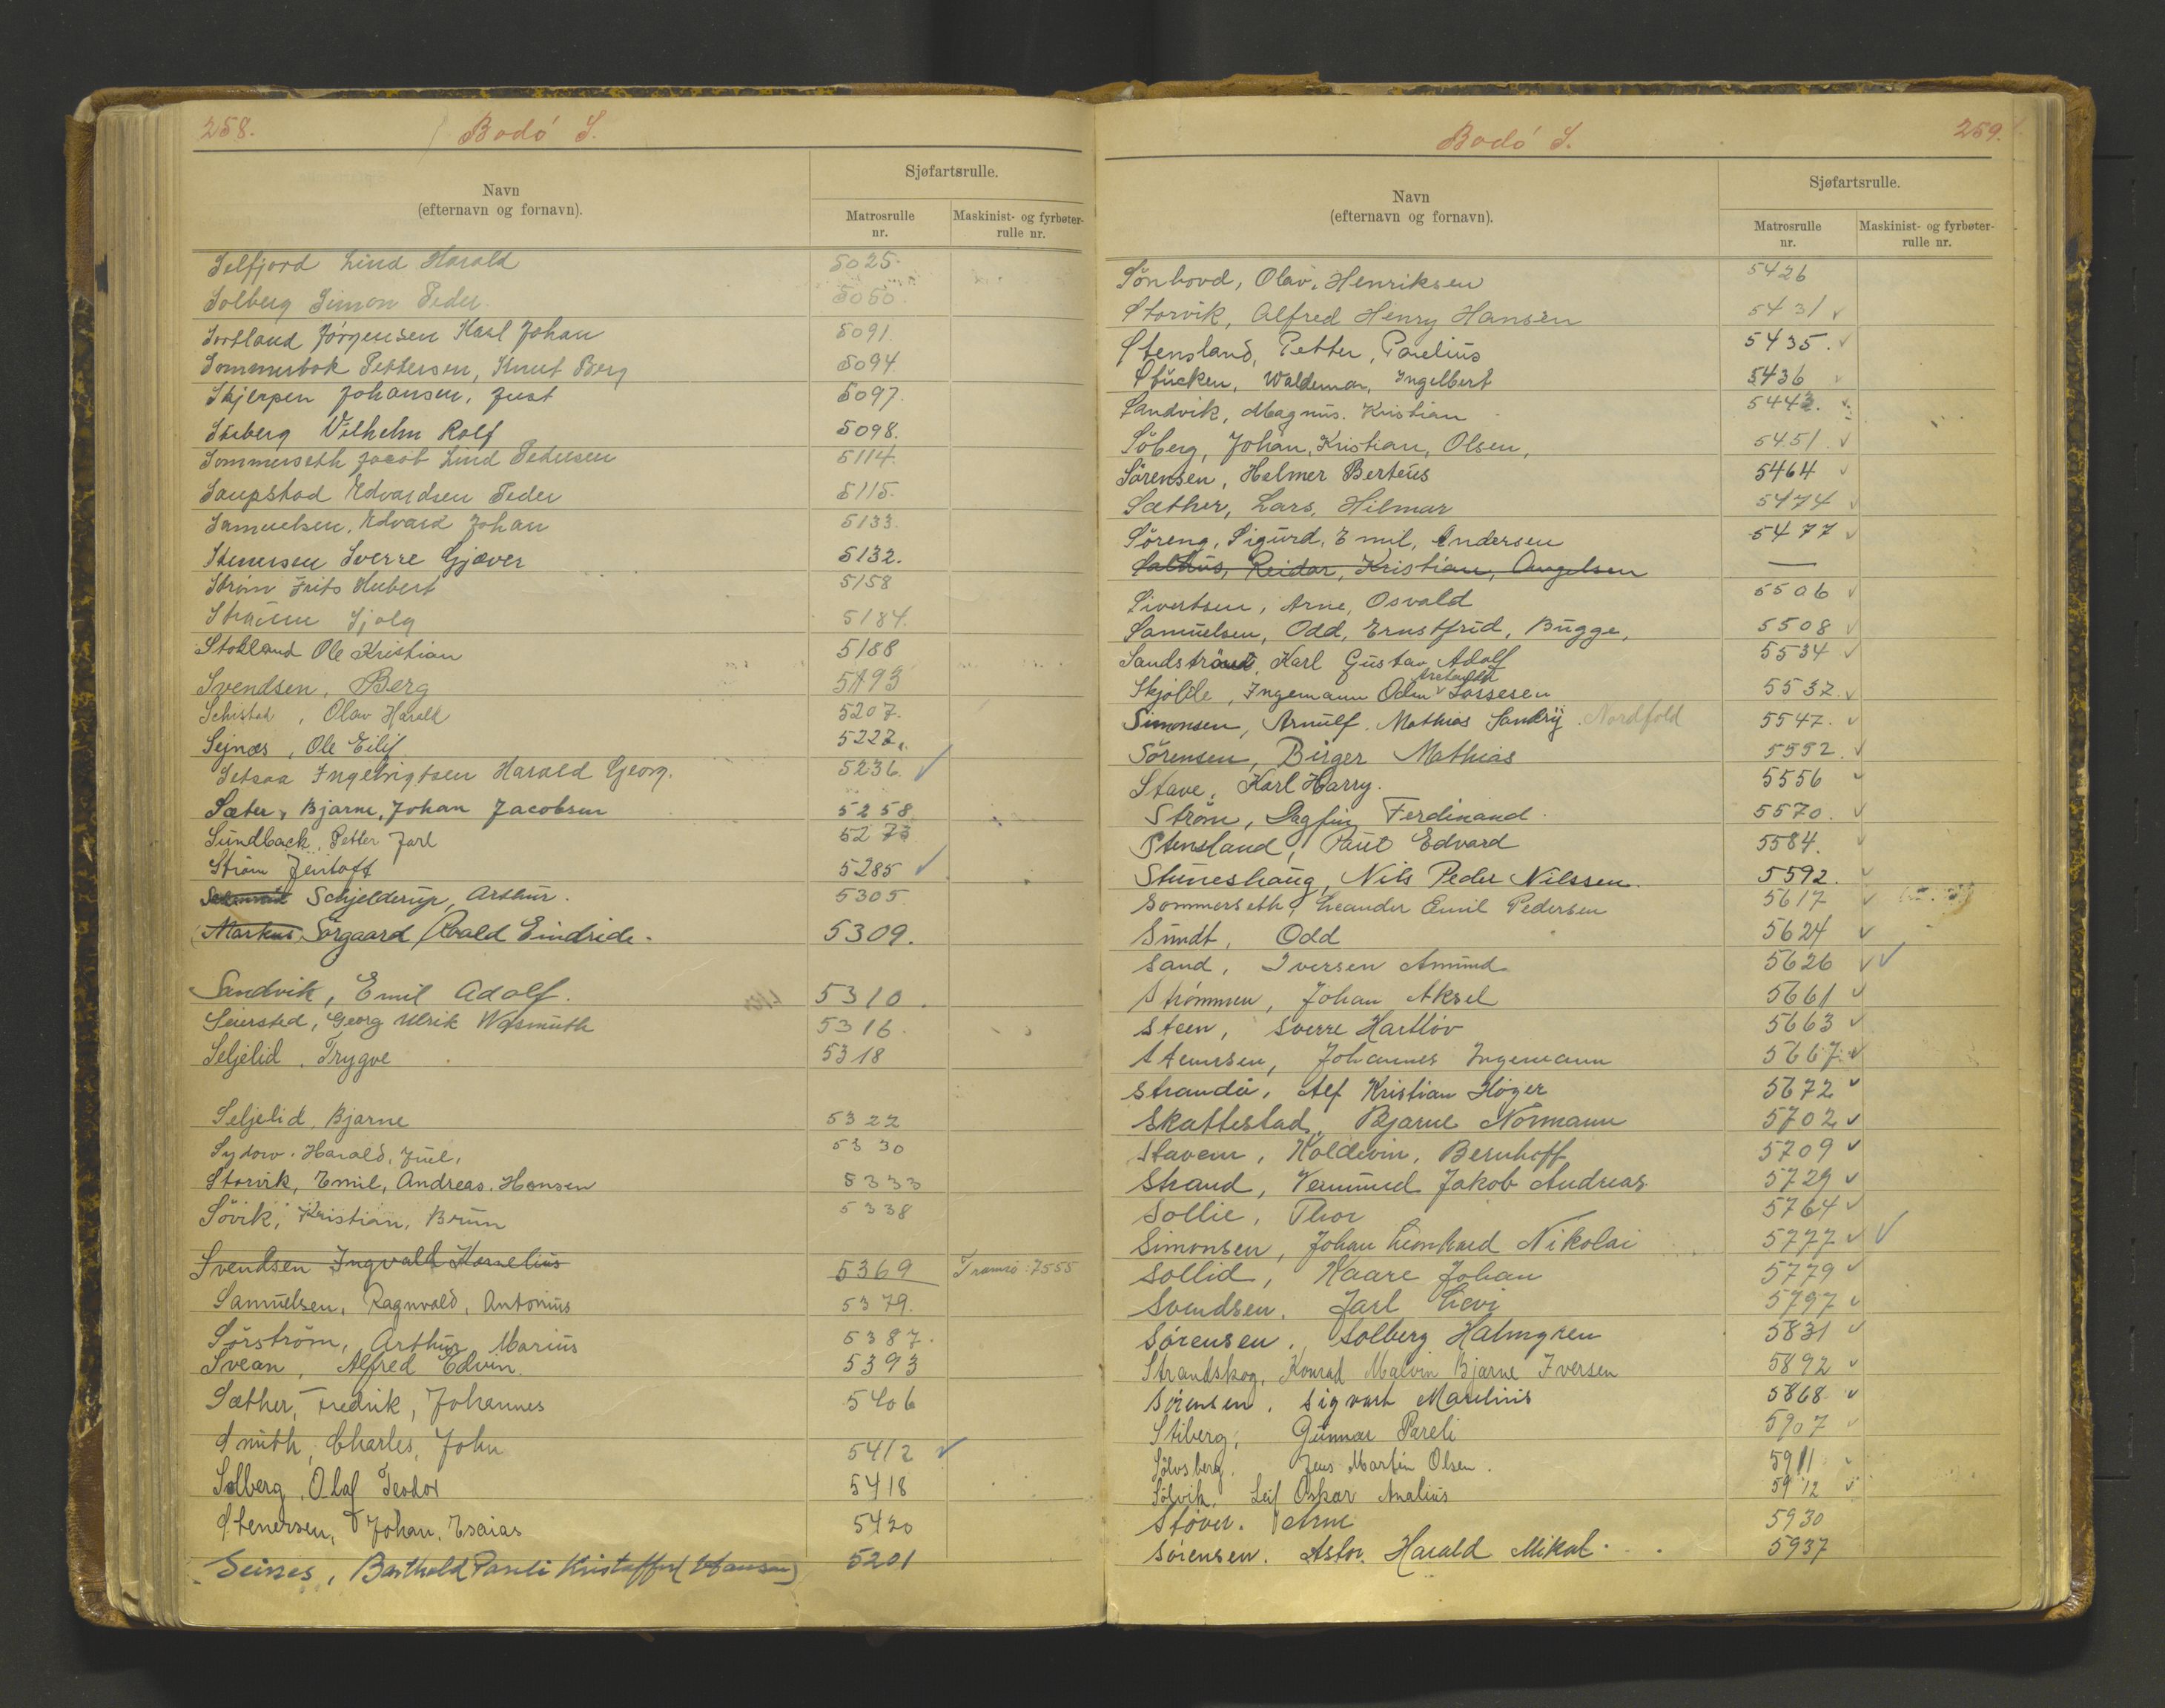 258.
Bodó S.
Navn
(efternavn og fornavn).
Sjøfartsrulle.
Matrosrulle nr.
Maskinist- og fyrbøter-rulle nr.
Selfjord Lind Harald 5025.
Solberg Simon Peder. 5050.
Sortland Jórgensen Karl Johan 5091.
Pettersen, Knut Berg 5094
Skjerpen Johansen, Just 5097.
Vilhelm Rolf 5098.
Sommerseth Jacob Lind Pedersen 5114.
Saupstad Edvardsen Peder 5115.
Samuelsen, Edvard Johan 5133.
Stenersen Sverre Gjæver 5132.
Strøm Frits Hubert 5158
5184.
Stokland Ole Kristian 5188
Svendsen, Berg 5193
Schistad, Olav Harald 5207.
Sejnæs, Ole Eilif 5227.
Setsaa Ingebrigtsen Harald Georg. 5236. ✓
Sæter, Bjarne, Johan Jacobsen 5258
Sundback, Petter Jarl 5273
Strøm Jentoft 5285 ✓
Schjelderup, Arthur. 5305
Markus Sørgaard Roald Eindride. 5309.
Sandvik, Emil Adolf. 5310.
Seiersted, Georg Ulrik Wasmuth 5316.
Seljelid, Trygve 5318
Seljelid, Bjarne 5322
Sydow. Harald, Juel, 5330
Storvik, Emil, Andreas. Hansen 5333
Sövik, Kristian, Brun 5338
Svendsen Ingvald Kornelius 5369 Tromsö: 7555
Samuelsen, Ragnvald, Antonius 5379.
Sörström, Arthur Marius 5387.
Svean, Alfred Edvin. 5393
Sæther, Fredrik, Johannes 5406
Smith, Charles, John 5412 ✓
Solberg, Olaf Teodor 5418
Stenersen, Johan, Esaias 5420
Seines, Barthold Pareli Kristoffer (Hansen) 5201
259.
Bodó S.
Navn
(efternavn og fornavn).
Sjøfartsrulle.
Matrosrulle nr.
Maskinist- og fyrbøter-rulle nr.
Sönhovd, Olav, Henriksen 5426
Storvik, Alfred Henry Hansen 5431 ✓
Stensland, Petter, Parelius 5435. ✓
Stucken, Waldemar, Ingelbert 5436 ✓
Sandvik, Magnus. Kristian 5443. ✓
Söberg, Johan, Kristian, Olsen, 5451. ✓
Sörensen, Helmer Berteus 5464 ✓
Sæther, Lars, Hilmar 5474 ✓
Söreng, Sigurd, Emil, Andersen 5477 ✓
Reidar, Kristian, Angelsen —
Sivertsen, Arne, Osvald 5506 ✓
Samuelsen, Odd, Ernstfrid, Bugge, 5508 ✓
Karl Gustav Adolf 5534 ✓
Skjolde, Ingemann Odin Lossesen 5537. ✓
Simonsen, Arnulf. Mathias Nordfold 5547. ✓
Sörensen, Birger Mathias 5552. ✓
Stave, Karl Harry. 5556 ✓
Ström, Dagfin Ferdinand. 5570. ✓
Stensland, Paul Edvard 5584. ✓
Stuneshaug, Nils Peder Nilssen. 5592. ✓
Sommerseth, Leander Emil Pedersen 5617 ✓
Sundt, Odd 5624 ✓
Sand, Iversen Amund 5626 ✓✓
Strömmen, Johan Aksel 5661 ✓
Steen, Sverre Hartlöv 5663 ✓
Stenersen, Johannes Ingemann 5667. ✓
Strandå, Alf Kristian Höyer 5672 ✓
Skattestad, Bjarne Normann 5702 ✓
Stavem, Koldevin, Bernhoff 5709 ✓
Strand, Vermund Jakob Andreas 5729 ✓
Sollie, Thor 5764 ✓
Simonsen, Johan Leonhard Nikolai 5777 ✓ ✓
Sollid, Kaare Johan 5779 ✓
Svendsen, Jarl Levi 5797 ✓
Sörensen, Solberg Halmgren 5831 ✓
Strandskog, Konrad Malvin Bjarne Iversen 5892 ✓
Sörensen, Sigvart Marelius 5868 ✓
Stiberg, Gunnar Pareli 5907 ✓
Sölvsberg, Jens Martin Olsen. 5911 ✓
Sölvik, Leif Oskar Analius 5912 ✓
Stöver. Arne 5930
Sörensen. Astor Harald Mikal. 5937